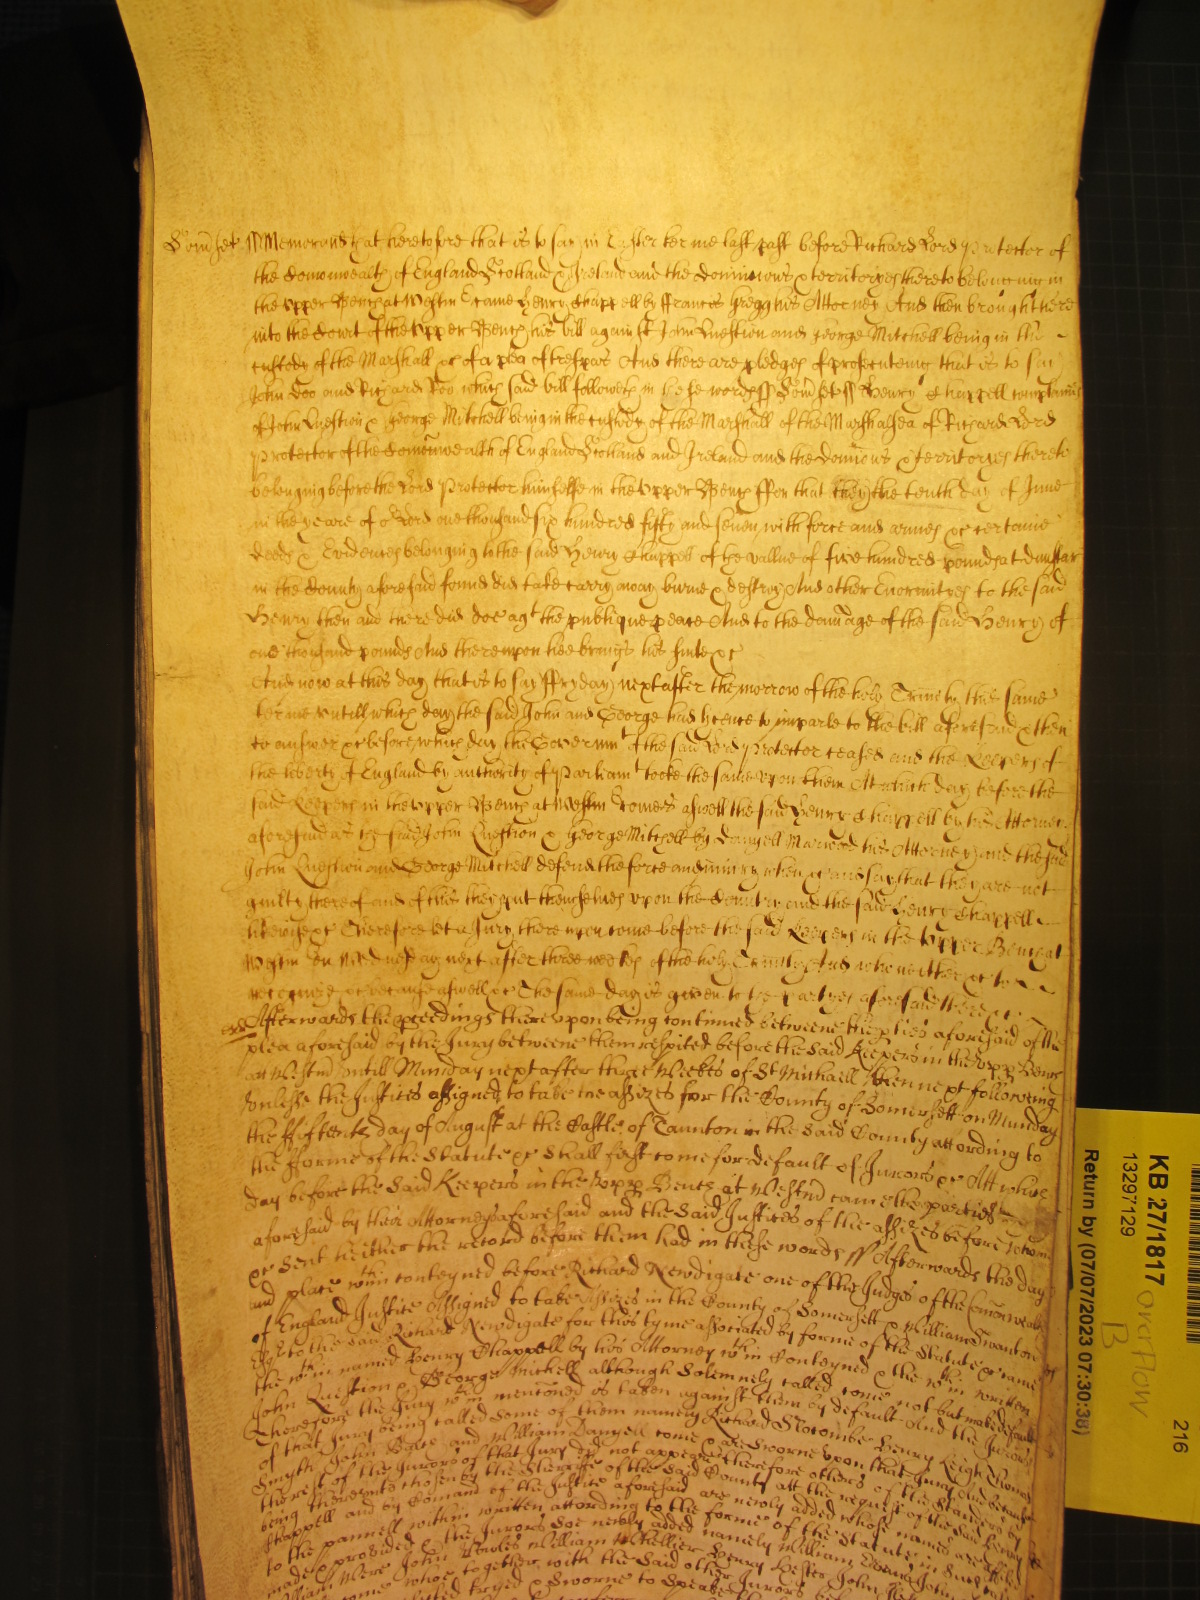 Somset ss Memorand that heretofore that is to say in Easter terme last past before Richard Lord Protector of
the Comonwealth of England Scotland & Ireland and the Dominions & territoryes thereto belonging in
the upper Bench at Westm came Henry Chappell by Francis Gregg his Attorney And then brought here
into the Court of the upper Bench his bill against John Question and George Mitchell being in the
custody of the Marshall &c of a plea of trespas And there are pledges of prosecuteing that is to say
John Doo and Richard Roo which said bill followeth in these words ss Somset ss Henry Chappell complaines
of John Question & George Mitchell being in the custody of the Marshall of the Marshalsea of Richard Lord
Protector of the Comonwealth of England Scotland and Ireland and the Dominions & territoryes thereto
belonging before the Lord Protector himselfe in the upper Bench ffor that they the tenth day of June
in the yeare of or Lord one thousand six hundred fifty and seven with force and armes &c certaine
deeds & Evidences belonging to the said Henry Chappell of the vallue of five hundred pounds at Dunstar
in the County aforesaid found did take carry away burne & destroy And other Enormityes to the said
Henry then and there did doe agt the publique peace And to the damage of the said Henry of
one thousand pounds And thereupon hee brings his suite &c
And now at this day that is to say ffryday next after the morrow of the holy Trinity this same
terme untill which day the said John and George had licence to imparle to the bill aforesaid & then
to answer &c before which day the Governmt of the said Lord Protector ceased and the Keepers of
the liberty of England by authority of Parliamt tooke the same upon them At which day before the
said Keepers in the upper Bench at Westm Comes aswell the said Henry Chappell by his Attorney
aforesaid as the said John Question & George Mitchell by Danyell Marwood his Attorney and the said
John Question and George Mitchell defend the force and iniury when &c and say that they are not
guilty thereof and of this they put themselves upon the Country and the said Henry Chappell
likewise &c Therefore let a Jury thereupon come before the said Keepers in the Upper Bench at
Westm on Wednesday next after three weekes of the holy Trinity And who neither &c to
recognize &c because aswell &c The same day is given to the partyes aforesaid there &c
Afterwards the pceedings thereupon being continued betweene the pties aforesaid of the
plea aforesaid by the Jury betweene them respited before the said Keepers in the Upp Bench
att Westm untill Munday next after three Weekes of St Michaell then next following
Unlesse the Justices assigned to take the assizes for the County of Somersett on Munday
the ffifteenth day of August at the Castle of Taunton in the said County according to
the fforme of the Statute &c shall first come for default of Jurors &c Att which
day before the said Keepers in the Upp Bench at Westm came the parties
aforesaid by their Attorneys aforesaid and the said Justices of the assizes before whom
&c sent hether the record before them had in these words ss Afterwards the day
and place wthin conteyned before Richard Newdigate one of the Judges of the Comonwealth
of England Justice Assigned to take Assizes in the County of Somersett & William Swanton
Esq to the said Richard Newdigate for this tyme associated by forme of the Statute &c came
the wthin named Henry Chappell by his Attorney wthin Conteyned & the wthin written
John Question & George Mitchell although Solemnely called come not but make default
Therefore the Jury wthin mentioned is taken against them by default And the Jurors
of that Jury being called some of them namely Richard Slocombe Henry Leigh Thomas
Smyth John and William Danyell come & are Sworne upon that Jury And because
the rest of the Jurors of that Jury did not appeare therefore others of the Standers by
being thereunto chosen by the Sheriffe of the said County att the request of the said Henry
Chappell and by Comand of the Justice aforesaid are newly added whose names are affiled
to the pannell within written according to the forme of the Statute in Such case
made & provided & the Jurors Soe newly added namely William John
William Were John William Henry John
come whoe together with the said other Jurors
tryed & Sworne to Speake
KB 27/1817
13297129
Return by (07/07/2023 07:30:38)
216
overflow
B